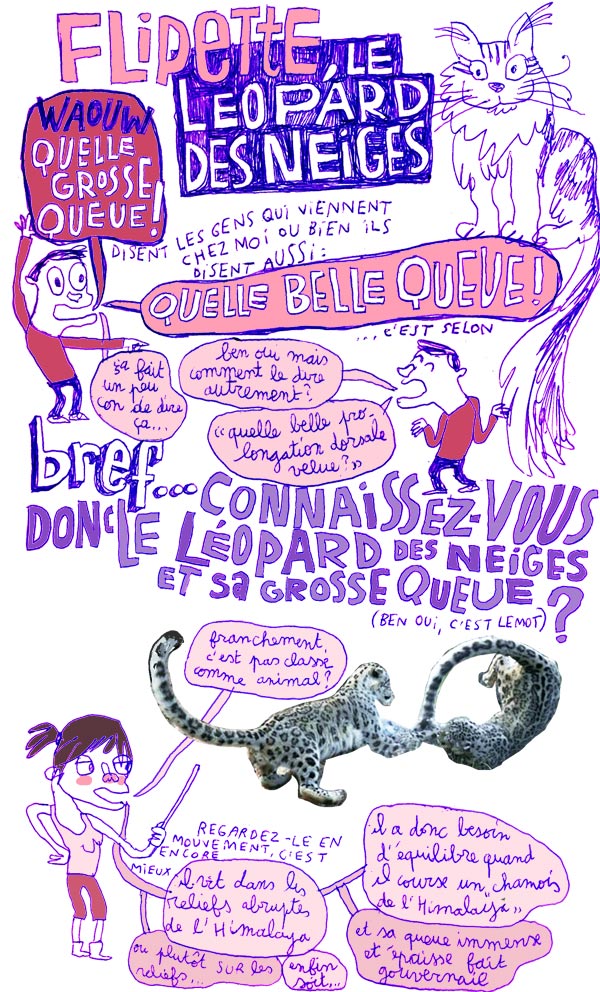 FLIPETTE
LE
LEOPARD
DES NEIGES
WAOUW
QUELLE
GROSSE
QUEUE!
DISENT LES GENS QUI VIENNENT
CHEZ MOI OU BIEN ILS
DISENT AUSSI:
QUELLE BELLE QUEUE!
...C'EST SELON
ça fait
un peu
con de dire
ça...
ben oui mais
comment le dire
autrement?
"quelle belle pro-
longation dorsale
velue?"
bref...
DONC CONNAISSEZ-VOUS
LE LÉOPARD DES NEIGES
ET Sa GROSSE QUEUE?
(BEN OUI, C'EST LE MOT)
franchement,
c'est pas classe
comme animal?
REGARDEZ-LE EN
MOUVEMENT, C'EST
ENCORE
MIEUX
il vit dans les
reliefs abruptes
de l'Himalaya
ou plutôt SUR les
reliefs...
enfin
soit...
il a donc besoin
d'équilibre quand
il course un "chamois
de l'Himalaya"
et sa queue immense
et épaisse fait
gouvernail